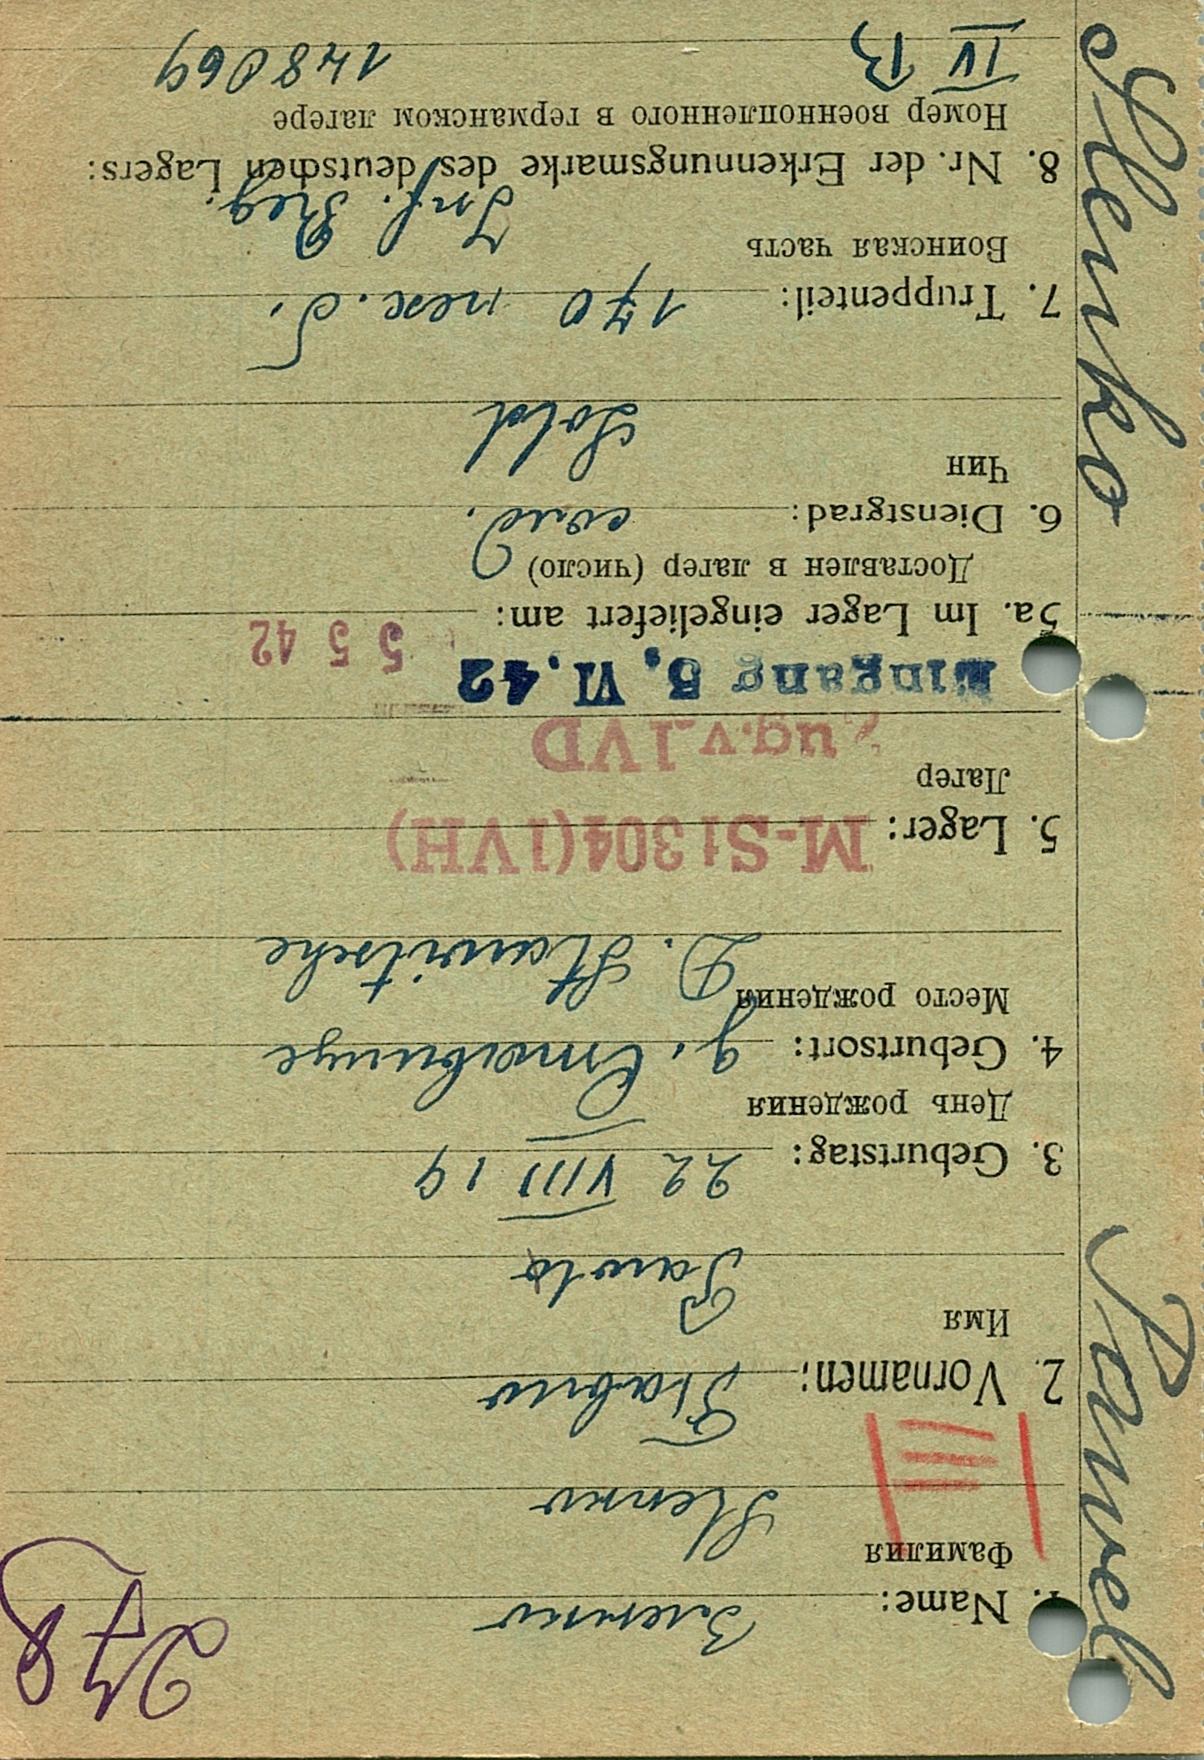 278
1. Name: Зленко
Фамилия
Slenko
2. Vornamen: Павло
Имя
Pawlo
3. Geburtstag: 22 VIII 19
День рождения
4. Geburtsort: д. Ставище
Место рождения
D. Stawitsche
5. Lager: M-St 304 (IVH)
Лагер
Zug.v.IVD
Eingang 5. VI. 42
5 5 42
5a. Im Lager eingeliefert am:
Доставлен в лагер (число)
6. Dienstgrad: солд.
Чин
Sold
7. Truppenteil: 170 пех. п.
Воинская часть
Inf. Reg.
8. Nr. der Erkennungsmarke des deutschen Lagers:
Номер военнопленного в германском лагере
IV B 148069
Slenko Pawel